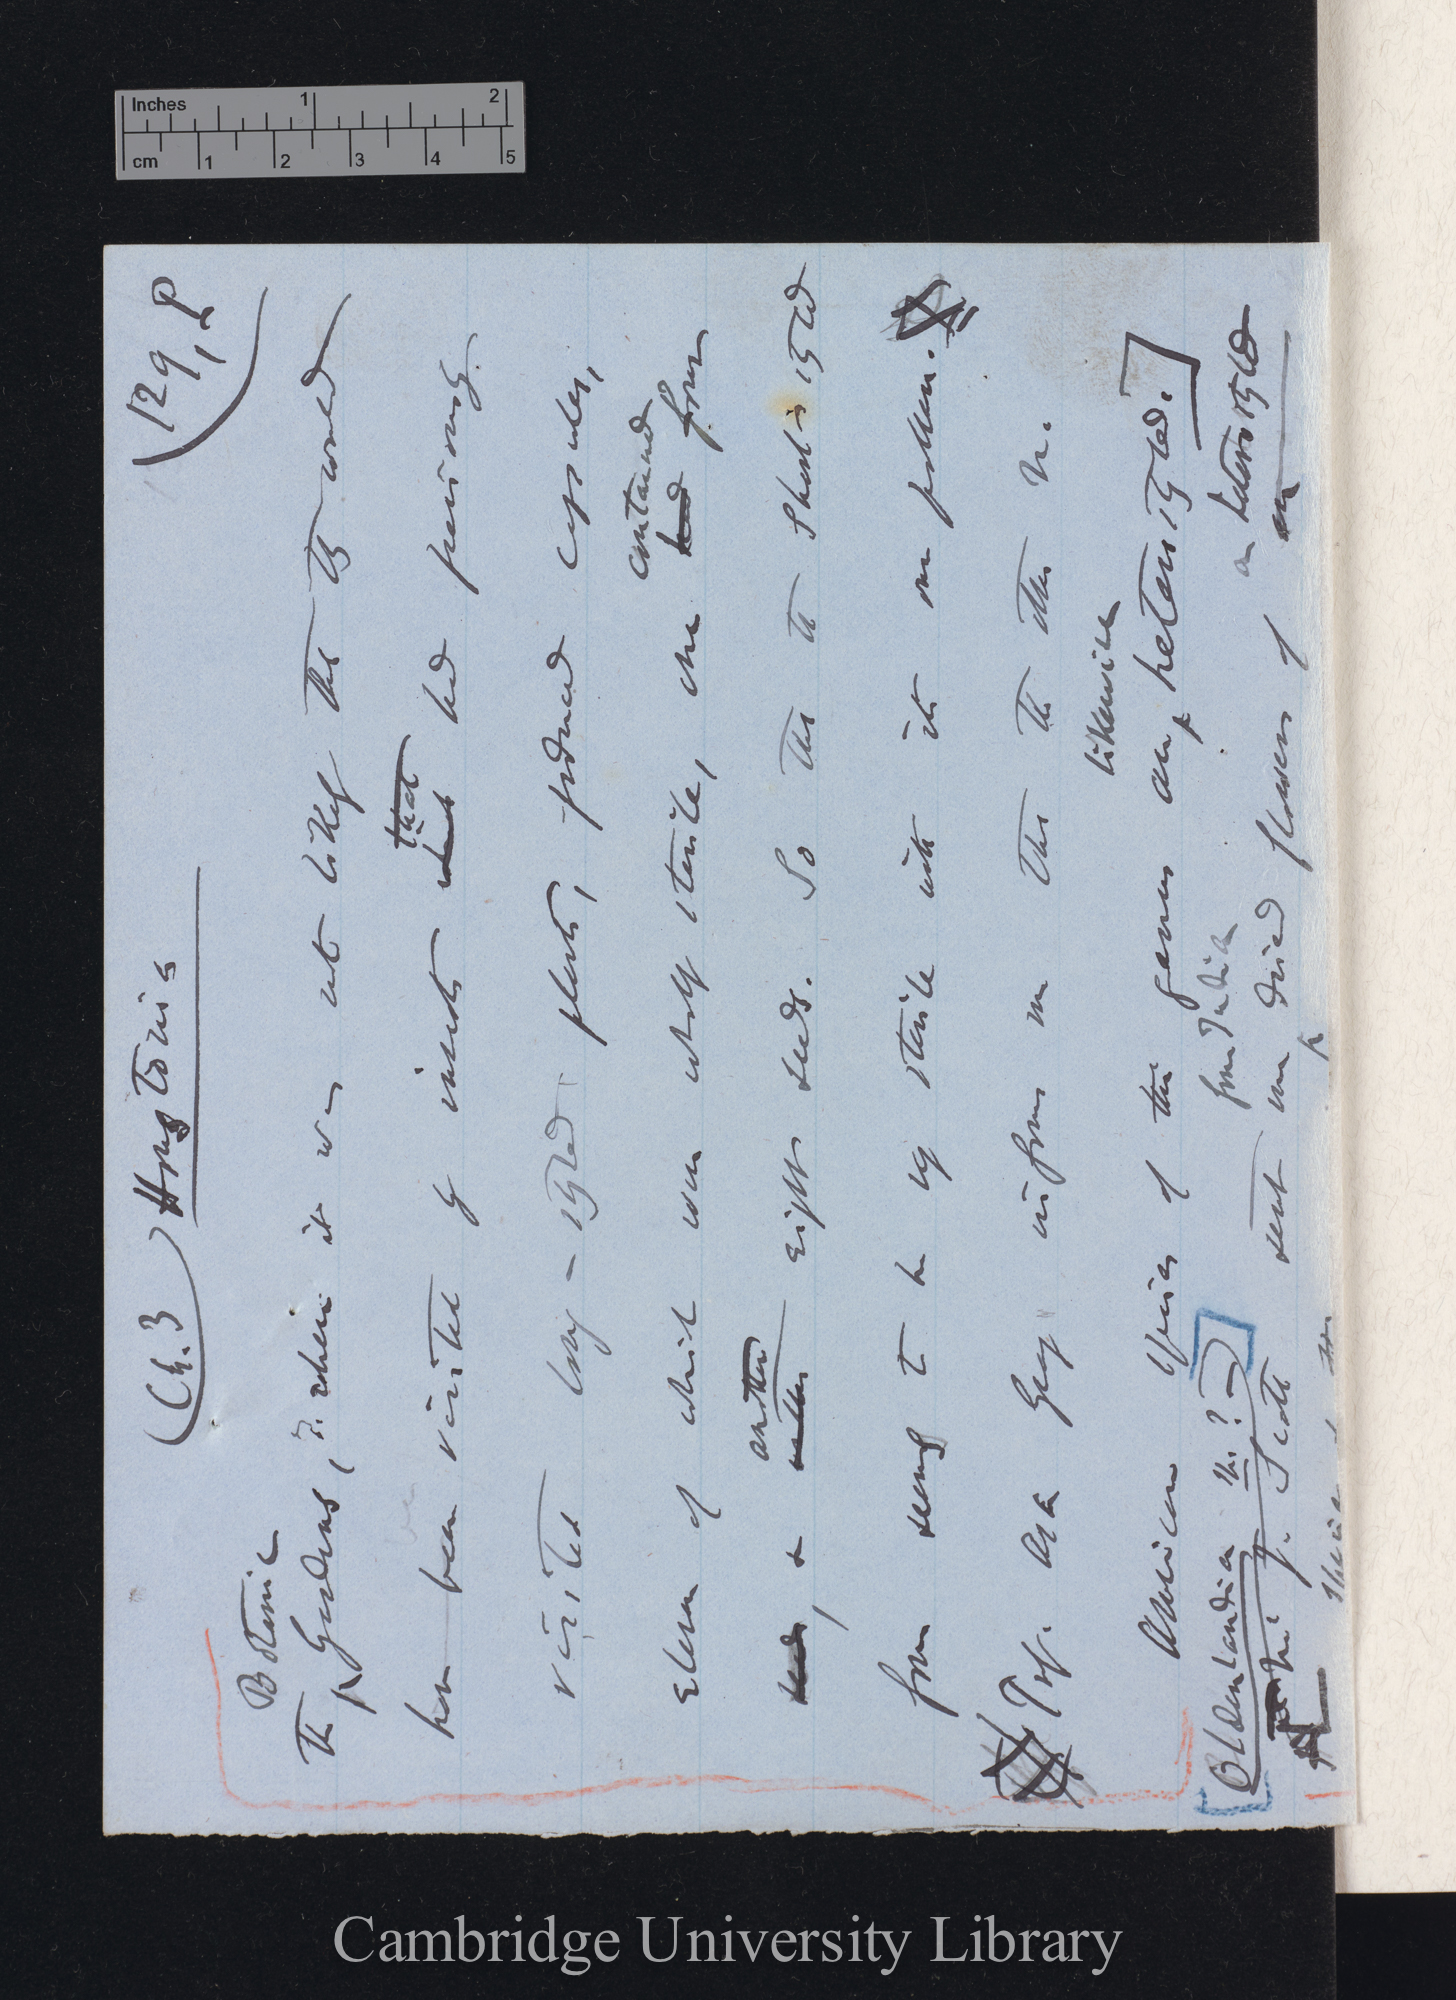 Inches 1 2
cm 1 2 3 4 5
(129, P
(Ch. 3) Houstonia
Botanic
The Gardens, where it was not likely that they would
that
have been visited by insects which had previously
visited long-styled plants, produced capsules,
contained
eleven of which were wholly sterile, one had from
another
seeds, & eight seeds. So that the short-styled
form seems to be by sterile with its own pollen.
Prof. Asa Gray informs me that the other N.
likewise
American species of this genus are heterostyled.
from India
Oldenlandia sp.?
Mr. J. Scott sent me dried flowers of an heterostyled
Cambridge University Library